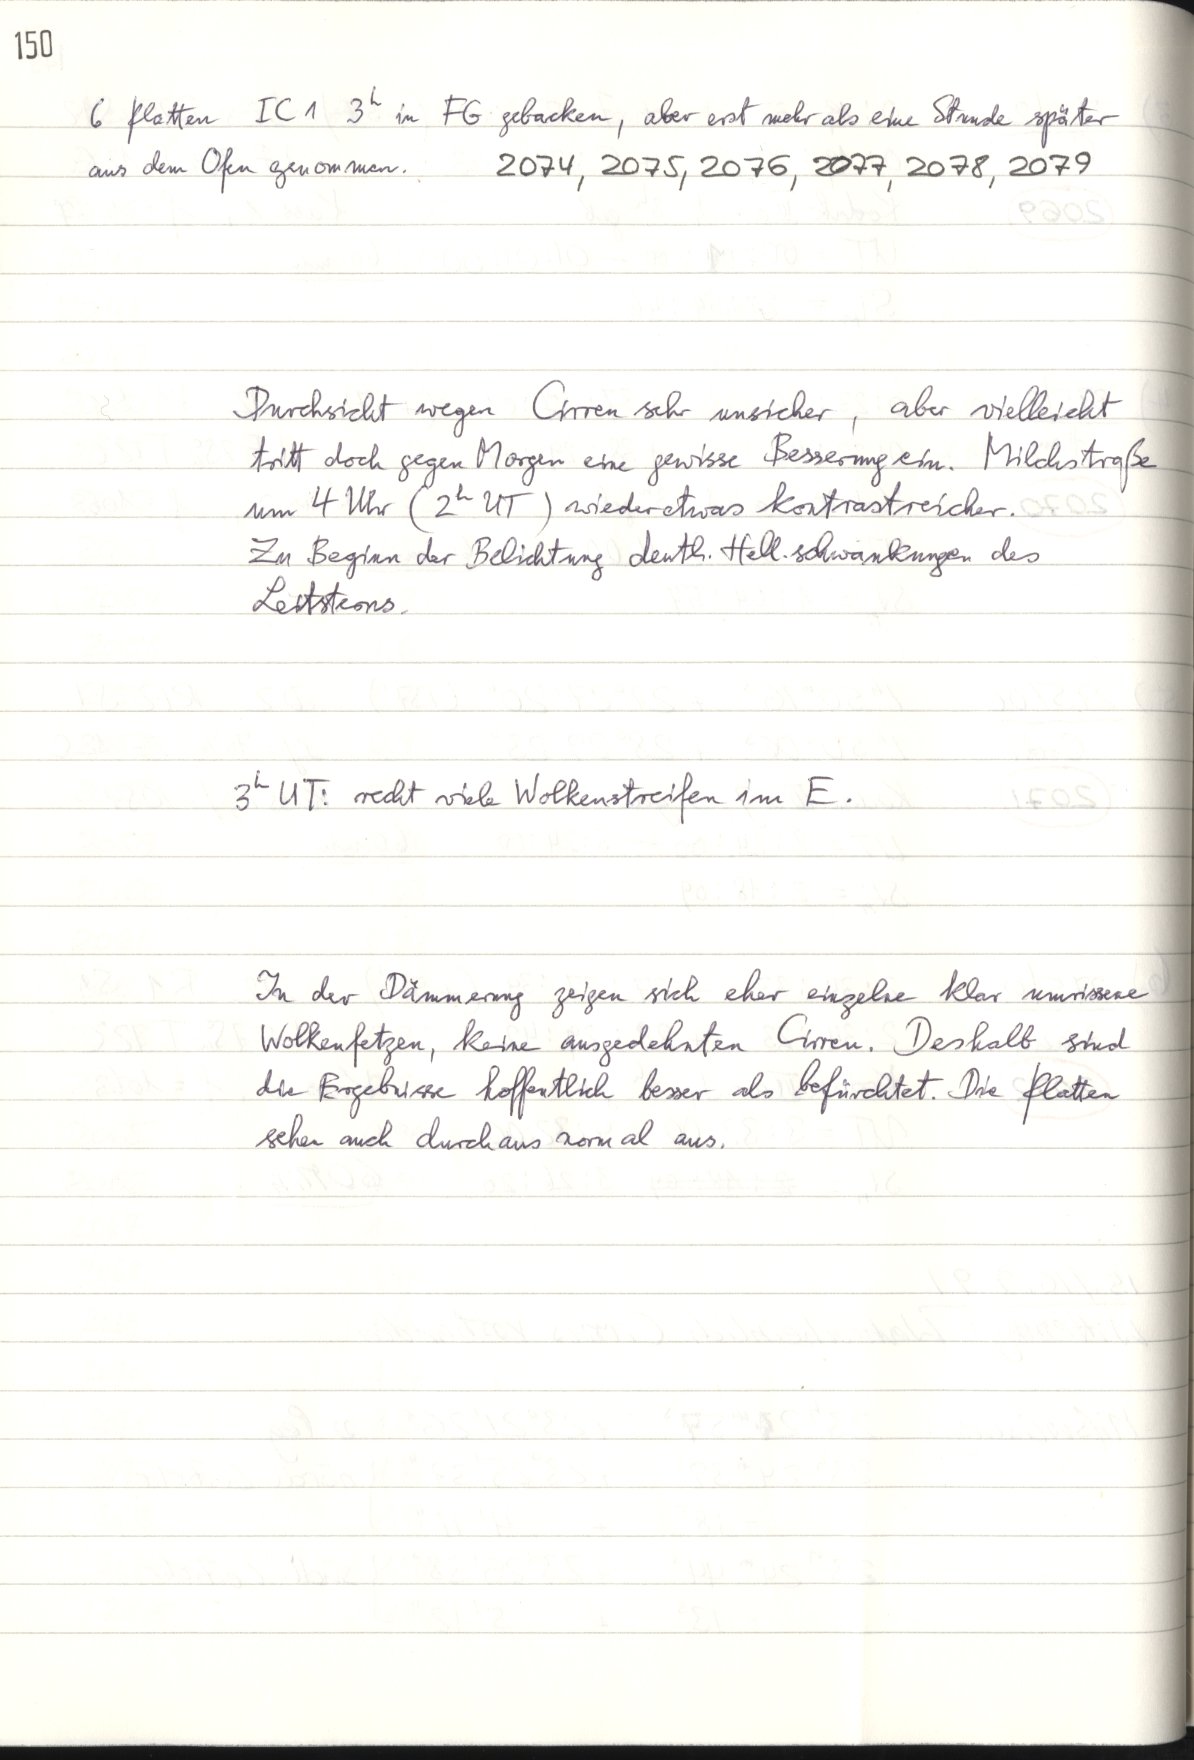 150
6 Platten IC1 3h in FG gebacken, aber erst mehr als eine Stunde später
aus dem Ofen genommen. 2074, 2075, 2076, 2077, 2078, 2079
Durchsicht wegen Cirren sehr unsicher, aber vielleicht
tritt doch gegen Morgen eine gewisse Besserung ein. Milchstraße
um 4 Uhr (2h UT) wieder etwas kontrastreicher.
Zu Beginn der Belichtung deutl. Hell.schwankungen des
Leitsterns.
3h UT: recht viele Wolkenstreifen im E.
In der Dämmerung zeigen sich eher einzelne klar umrissene
Wolkenfetzen, keine ausgedehnten Cirren. Deshalb sind
die Ergebnisse hoffentlich besser als befürchtet. Die Platten
sehen auch durchaus normal aus.